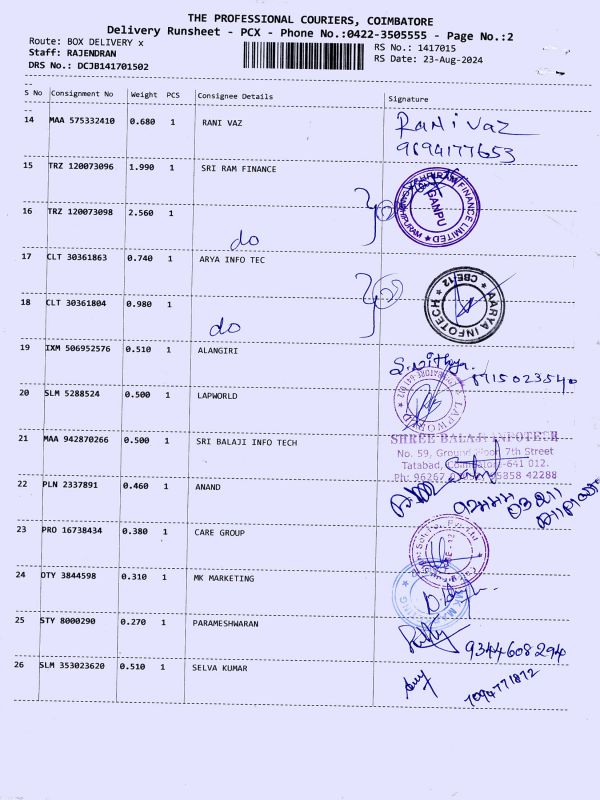 THE PROFESSIONAL COURIERS, COIMBATORE
Delivery Runsheet - PCX - Phone No.:0422-3505555 - Page No.:2
Route: BOX DELIVERY x
RS No.: 1417015
Staff: RAJENDRAN
RS Date: 23-Aug-2024
DRS No.: DCJB141701502
S No Consignment No Weight PCS Consignee Details Signature
14 MAA 575332410 0.680 1 RANI VAZ RANI VAZ
9694177653
15 TRZ 120073096 1.990 1 SRI RAM FINANCE
FINANCE LIMITED
GANPU
16 TRZ 120073098 2.560 1
do
17 CLT 30361863 0.740 1 ARYA INFO TEC
CBE-12
AARYA INFOTECH
18 CLT 30361804 0.980 1
do
19 IXM 506952576 0.510 1 ALANGIRI S. Nithya.
8715023540
20 SLM 5288524 0.500 1 LAPWORLD
LAPWORLD
21 MAA 942870266 0.500 1 SRI BALAJI INFO TECH
SHREE BALAJI INFOTECH
No. 59, Ground Floor, 7th Street
Tatabad, Coimbatore-641 012.
22 PLN 2337891 0.460 1 ANAND
23 PRO 16738434 0.380 1 CARE GROUP
24 OTY 3844598 0.310 1 MK MARKETING
25 STY 8000290 0.270 1 PARAMESHWARAN
9344608294
26 SLM 353023620 0.510 1 SELVA KUMAR
7094771872